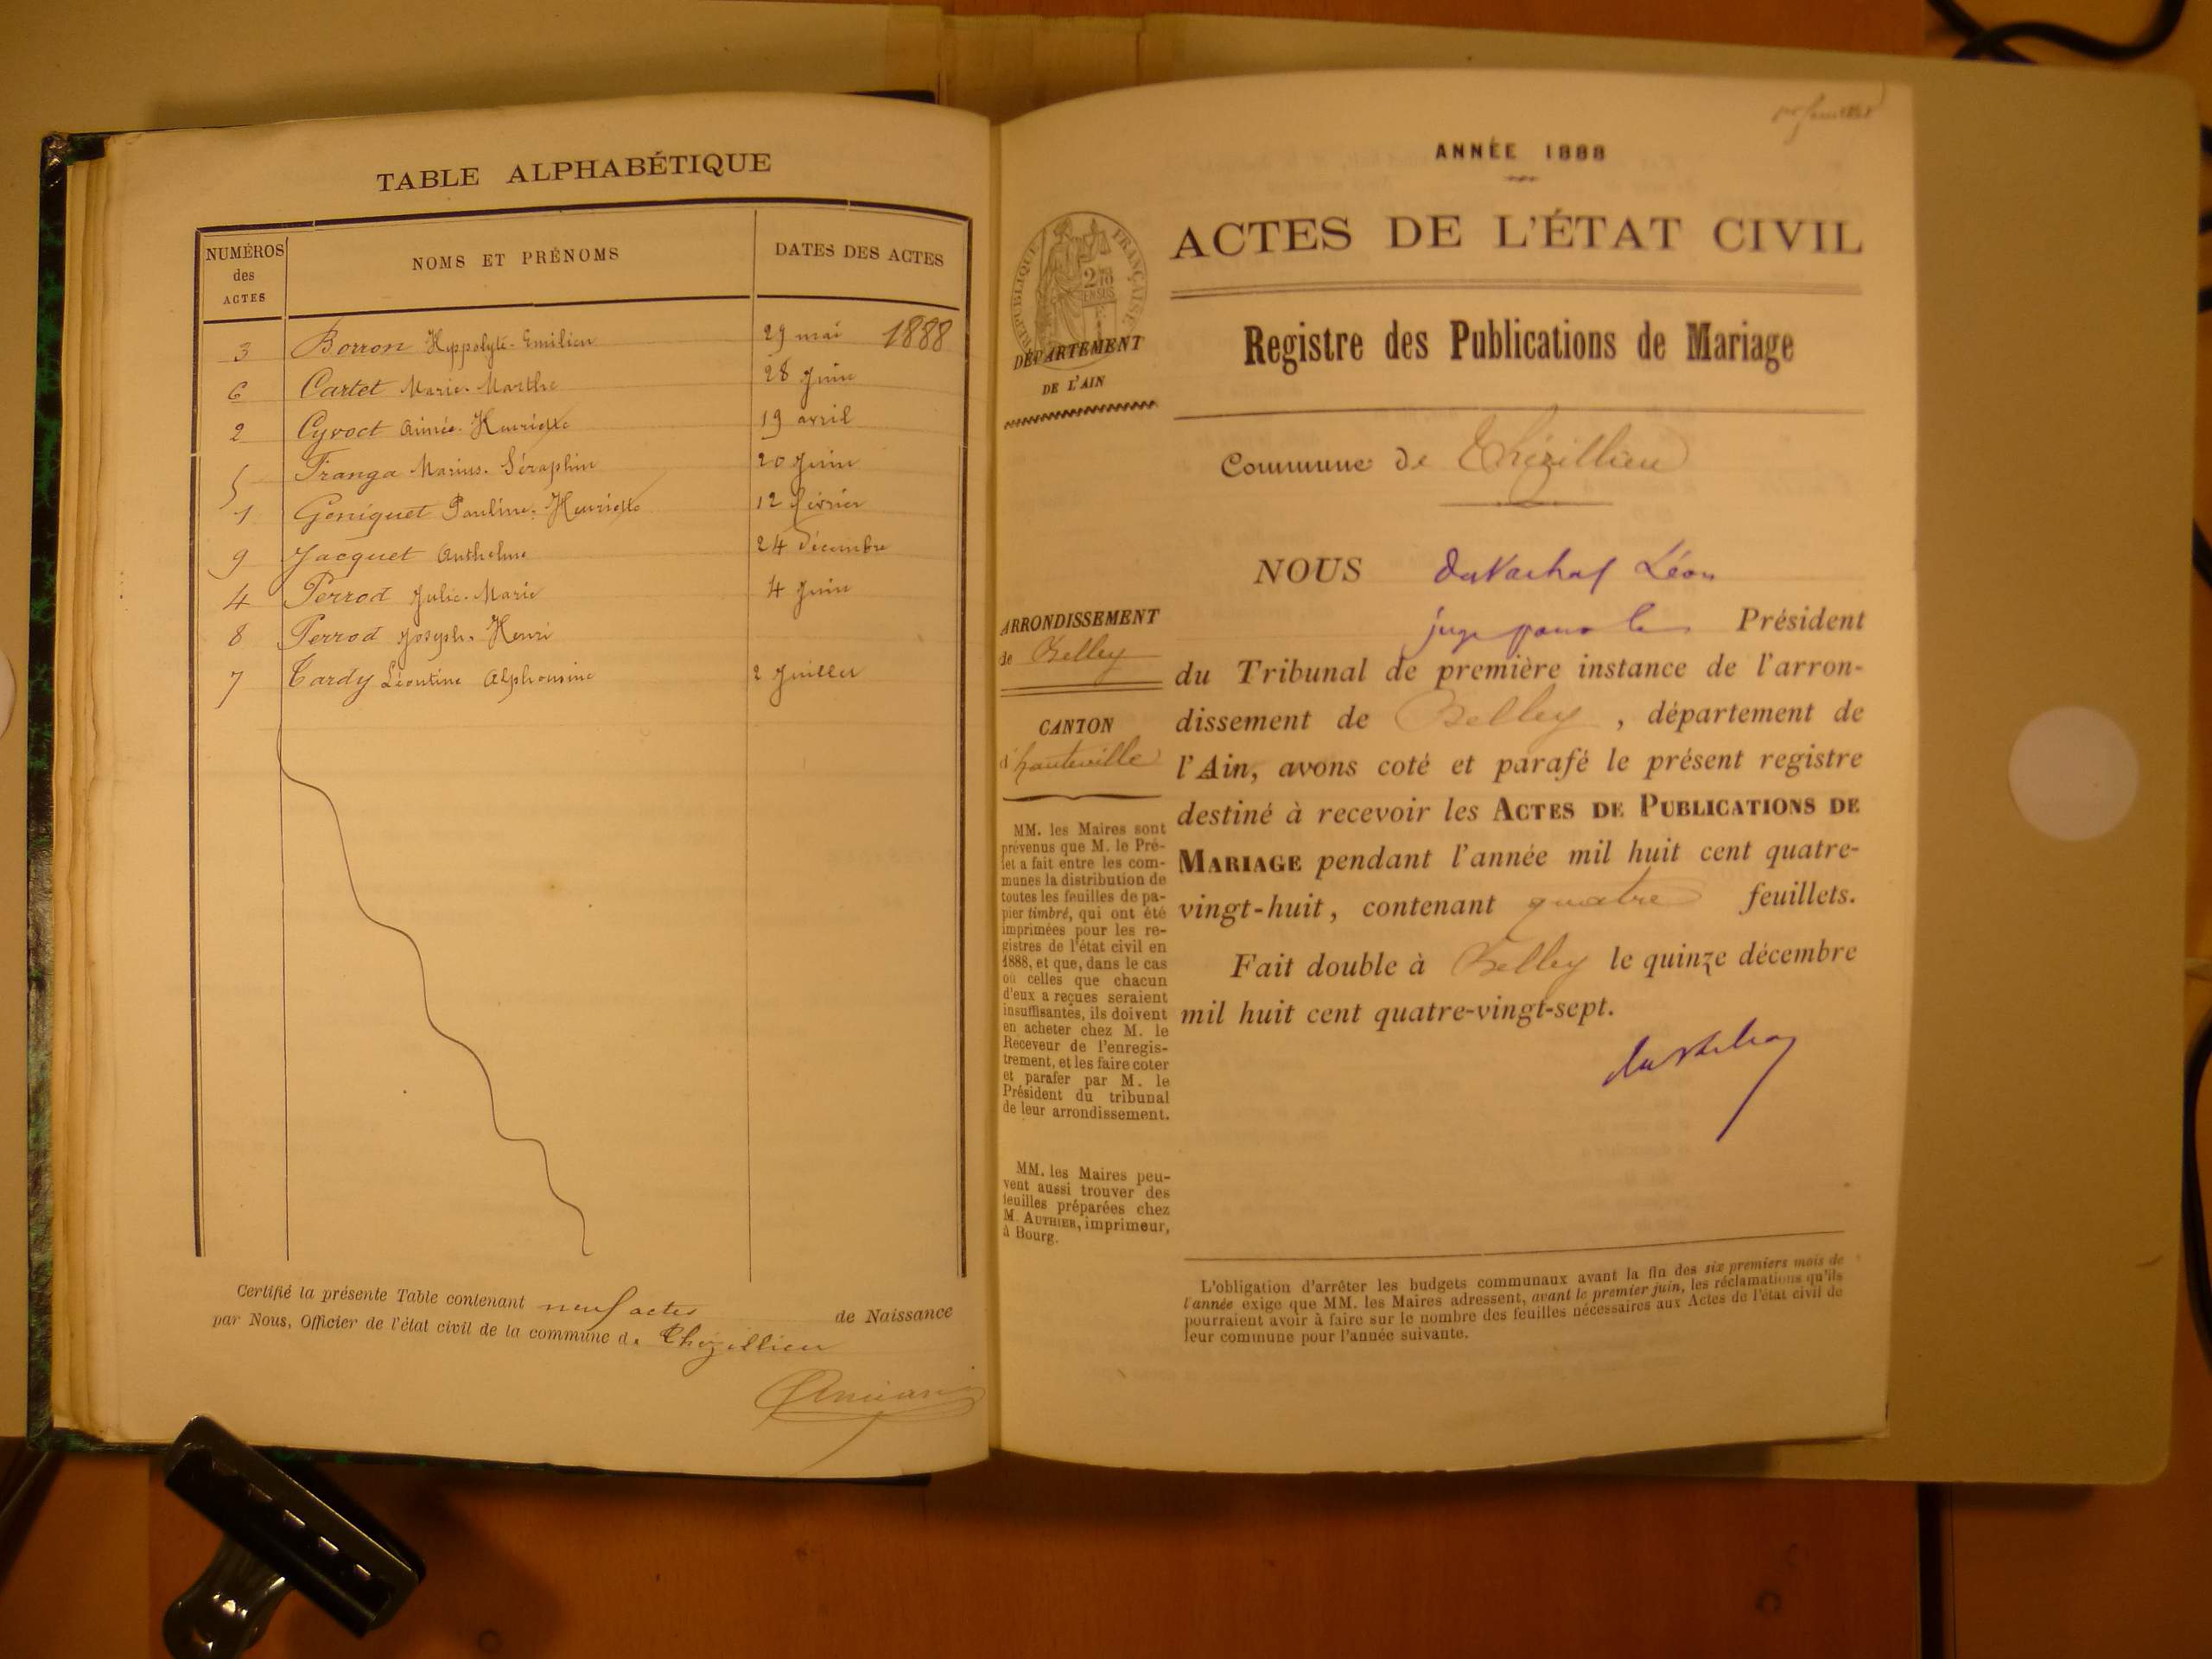 TABLE ALPHABÉTIQUE
NUMÉROS
des
ACTES
NOMS ET PRÉNOMS
DATES DES ACTES
3 Borron Hyppolyte-Emilien 29 mai 1888
6 Cartet Marie-Marthe 28 Juin
2 Cyvoct Aimée-Henriette 19 avril
5 Franga Marius-Séraphin 20 Juin
1 Goniquet Pauline-Henriette 12 février
9 Jacquet Anthelme 24 Décembre
4 Perrod Julie-Marie 4 Juin
8 Perrod Joseph-Henri
7 Tardy Léontine Alphonsine 2 Juillet
Certifié la présente Table contenant neuf actes de Naissance
par Nous, Officier de l'état civil de la commune de Thézillieu
ANNÉE 1888
RÉPUBLIQUE FRANÇAISE
ACTES DE L'ÉTAT CIVIL
DÉPARTEMENT
DE L'AIN
Registre des Publications de Mariage
Commune de Thézillieu
ARRONDISSEMENT
de Belley
CANTON
d'hauteville
MM. les Maires sont
prévenus que M. le Pré-
fet a fait entre les com-
munes la distribution de
toutes les feuilles de pa-
pier timbré, qui ont été
imprimées pour les re-
gistres de l'état civil en
1888, et que, dans le cas
où celles que chacun
d'eux a reçues seraient
insuffisantes, ils doivent
en acheter chez M. le
Receveur de l'enregis-
trement, et les faire coter
et parafer par M. le
Président du tribunal
de leur arrondissement.
MM. les Maires peu-
vent aussi trouver des
feuilles préparées chez
M. AUTHIER, imprimeur,
à Bourg.
NOUS Léon
juge pour le Président
du Tribunal de première instance de l'arron-
dissement de Belley, département de
l'Ain, avons coté et parafé le présent registre
destiné à recevoir les ACTES DE PUBLICATIONS DE
MARIAGE pendant l'année mil huit cent quatre-
vingt-huit, contenant quatre feuillets.
Fait double à Belley le quinze décembre
mil huit cent quatre-vingt-sept.
L'obligation d'arrêter les budgets communaux avant la fin des six premiers mois de
l'année exige que MM. les Maires adressent, avant le premier juin, les réclamations qu'ils
pourraient avoir à faire sur le nombre des feuilles nécessaires aux Actes de l'état civil de
leur commune pour l'année suivante.